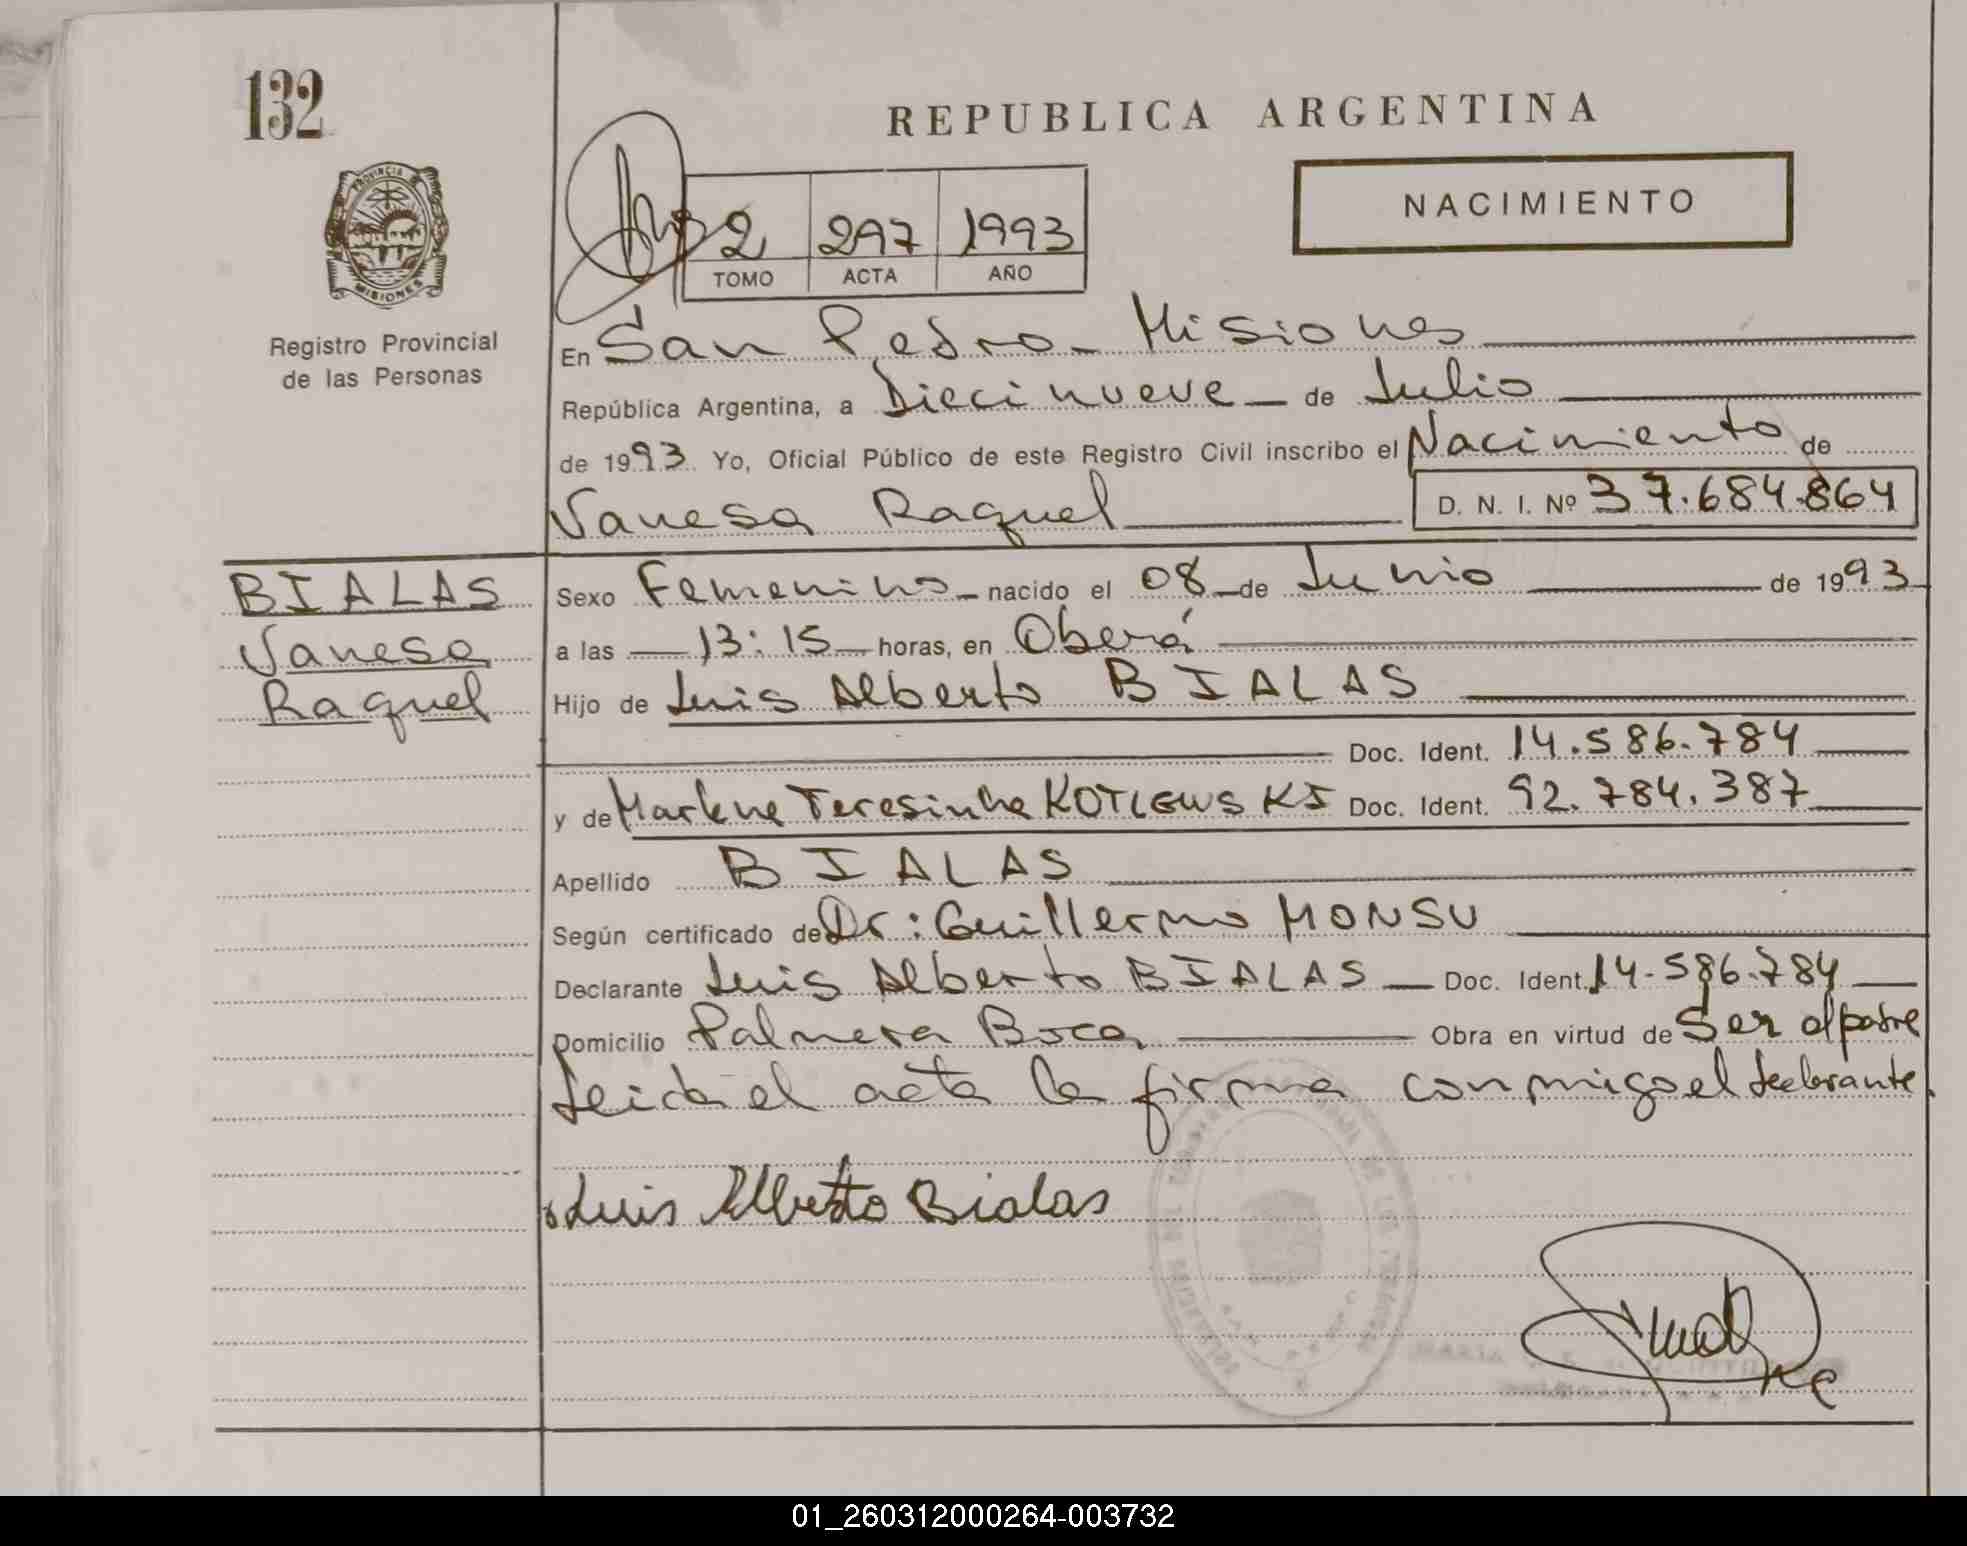 132
REPUBLICA ARGENTINA
NACIMIENTO
2 297 1993
TOMO ACTA AÑO
PROVINCIA DE
MISIONES
Registro Provincial
de las Personas
En San Pedro - Misiones
República Argentina, a Diecinueve - de Julio
de 1993 Yo, Oficial Público de este Registro Civil inscribo el Nacimiento de
Vanesa Raquel D. N. I. Nº 37.684.864
BIALAS
Vanesa
Raquel
Sexo Femenino - nacido el 08 - de Junio de 1993
a las 13:15 horas, en Oberá
Hijo de Luis Alberto BIALAS
Doc. Ident. 14.586.784
y de Marlene Teresinha KOTLEWSKI Doc. Ident. 92.784.387
Apellido BIALAS
Según certificado de Dr: Guillermo MONSU
Declarante Luis Alberto BIALAS - Doc. Ident. 14.586.784
Domicilio Palmera Boca Obra en virtud de Ser el padre
Leida el acta la firma conmigo el declarante.
Luis Alberto Bialas
01_260312000264-003732